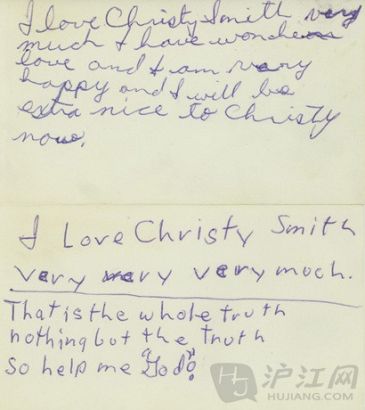 I love Christy Smith very
much & have wonders
love and I am very
happy and I will be
extra nice to Christy
now.
I Love Christy Smith
very very very much.
That is the whole truth
nothing but the truth
So help me "God"!
沪江网
HUJIANG.COM